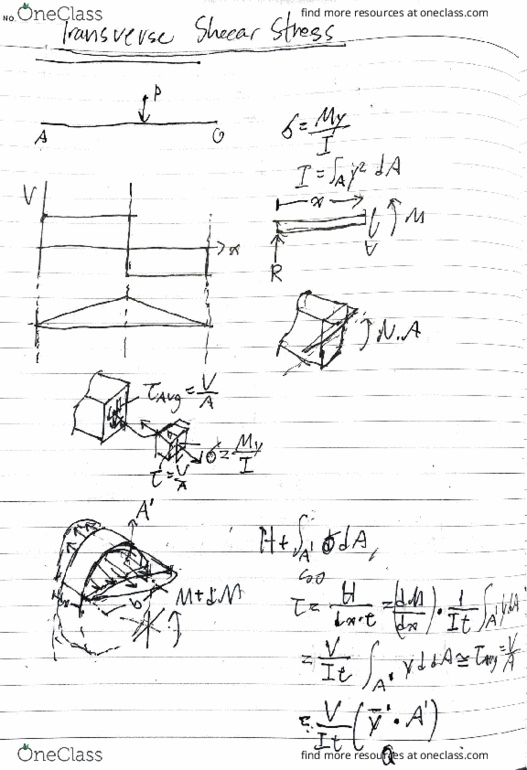 NO.
OneClass
find more resources at oneclass.com
Transverse Shear Stress
P
A
V
x
σ = My/I
I = ∫A y² dA
x
M
V
R
N.A
τAvg = V/A
σ = My/I
τ = V/A
A'
M+dM
H + ∫A' σ dA,
τ = H/(dx·t) = (dM/dx) · 1/(It) ∫A' y dA
= V/(It) ∫A' y dA ≅ τAvg = V/A
= V/(It) (ȳ' · A')
Q
OneClass
find more resources at oneclass.com